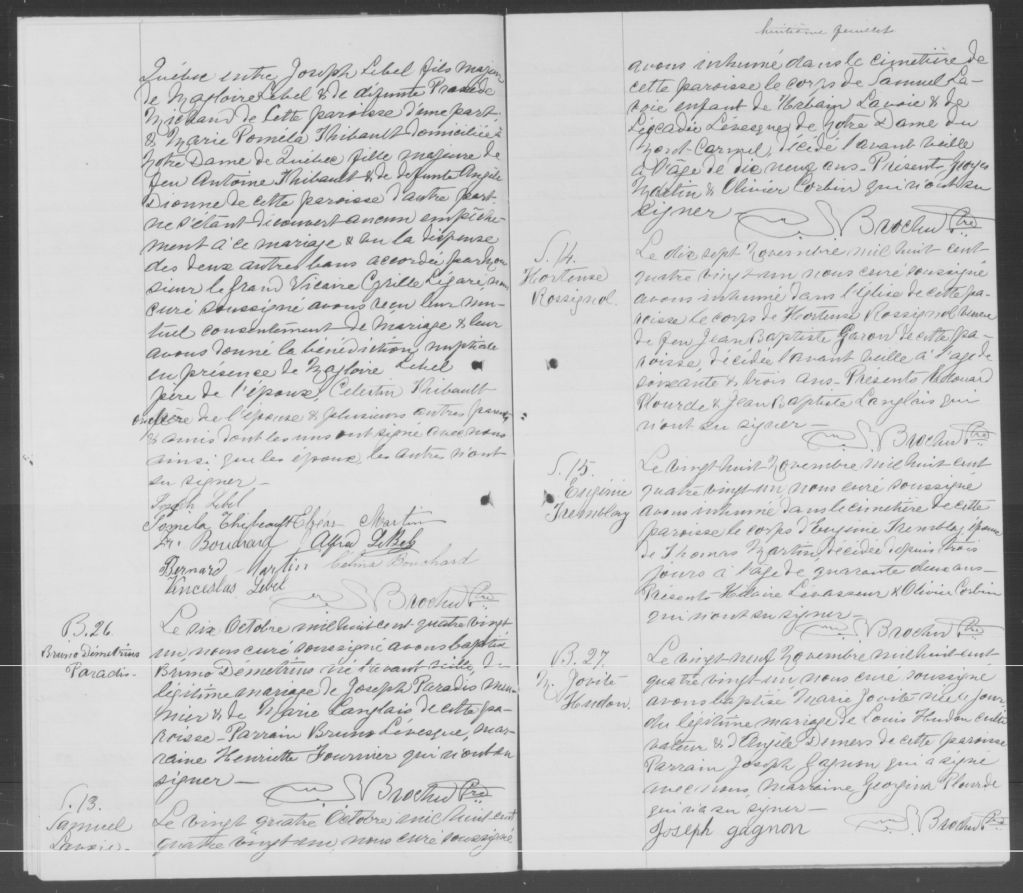 Québec entre Joseph Lebel fils majeur
de Magloire Lebel & de défunte Praxède
Michaud de cette paroisse d'une part
& Marie Poméla Thibault domiciliée à
Notre Dame de Québec fille majeure de
feu Antoine Thibault & de défunte Angèle
Dionne de cette paroisse d'autre part
ne s'étant découvert aucun empêche-
ment à ce mariage & vu la dispense
des deux autres bans accordée par Mon
sieur le Grand Vicaire Cyrille Légaré, nous
curé soussigné avons reçu leur mu-
tuel consentement de mariage & leur
avons donné la bénédiction nuptiale
en présence de Magloire Lebel
père de l'époux, Célestin Thibault
frère de l'épouse & plusieurs autres parents
& amis dont les uns ont signé avec nous
ainsi que les époux, les autres n'ont
su signer —
Joseph Lebel
Pomela Thibeault Elzéar Martin
Bouchard Alfred LeBel
Bernard Martin Celina Bouchard
Vinceslas Lebel
Brochu Ptre
B. 26.
Bruno Démétrius
Paradis.
Le six Octobre mil huit cent quatre vingt
un nous curé soussigné avons baptisé
Bruno Démétrius né l'avant veille du
légitime mariage de Joseph Paradis meu-
nier & de Marie Langlais de cette pa-
roisse - Parrain Bruno Lévesque, mar-
raine Henriette Fournier qui n'ont su
signer —
Brochu Ptre
S. 13.
Samuel
Lavoie -
Le vingt quatre Octobre mil huit cent
quatre vingt un, nous curé soussigné
huitième feuillet
avons inhumé dans le cimetière de
cette paroisse le corps de Samuel La-
voie enfant de Hebain Lavoie & de
Léocadie Lévesque de Notre Dame du
Mont-Carmel, décédé l'avant veille
à l'âge de dix neuf ans - Présents
Martin & Olivier Corbin qui n'ont su
signer —
Brochu Ptre
S. 14.
Hortense
Rossignol.
Le dix sept Novembre mil huit cent
quatre vingt un nous curé soussigné
avons inhumé dans l'Église de cette pa-
roisse le corps de Hortense Rossignol veuve
de feu Jean Baptiste Garon de cette pa-
roisse, décédée l'avant veille à l'âge de
soixante & trois ans - Présents Edouard
Plourde & Jean Baptiste Langlais qui
n'ont su signer —
Brochu Ptre
S. 15.
Eugénie
Tremblay
Le vingt huit Novembre mil huit cent
quatre vingt un, nous curé soussigné
avons inhumé dans le cimetière de cette
paroisse le corps d'Eugénie Tremblay épouse
de Thomas Martin, décédée depuis trois
jours à l'âge de quarante deux ans -
Présents Hilaire Levasseur & Olivier Corbin
qui n'ont su signer -
Brochu Ptre
B. 27.
M. Jovite
Hudon.
Le vingt neuf Novembre mil huit cent
quatre vingt un nous curé soussigné
avons baptisé Marie Jovite née ce jour
du légitime mariage de Louis Hudon culti
vateur & d'Angèle Demers de cette paroisse
Parrain Joseph Gagnon qui a signé
avec nous, marraine Georgina Plourde
qui n'a su signer —
Joseph gagnon
Brochu Ptre